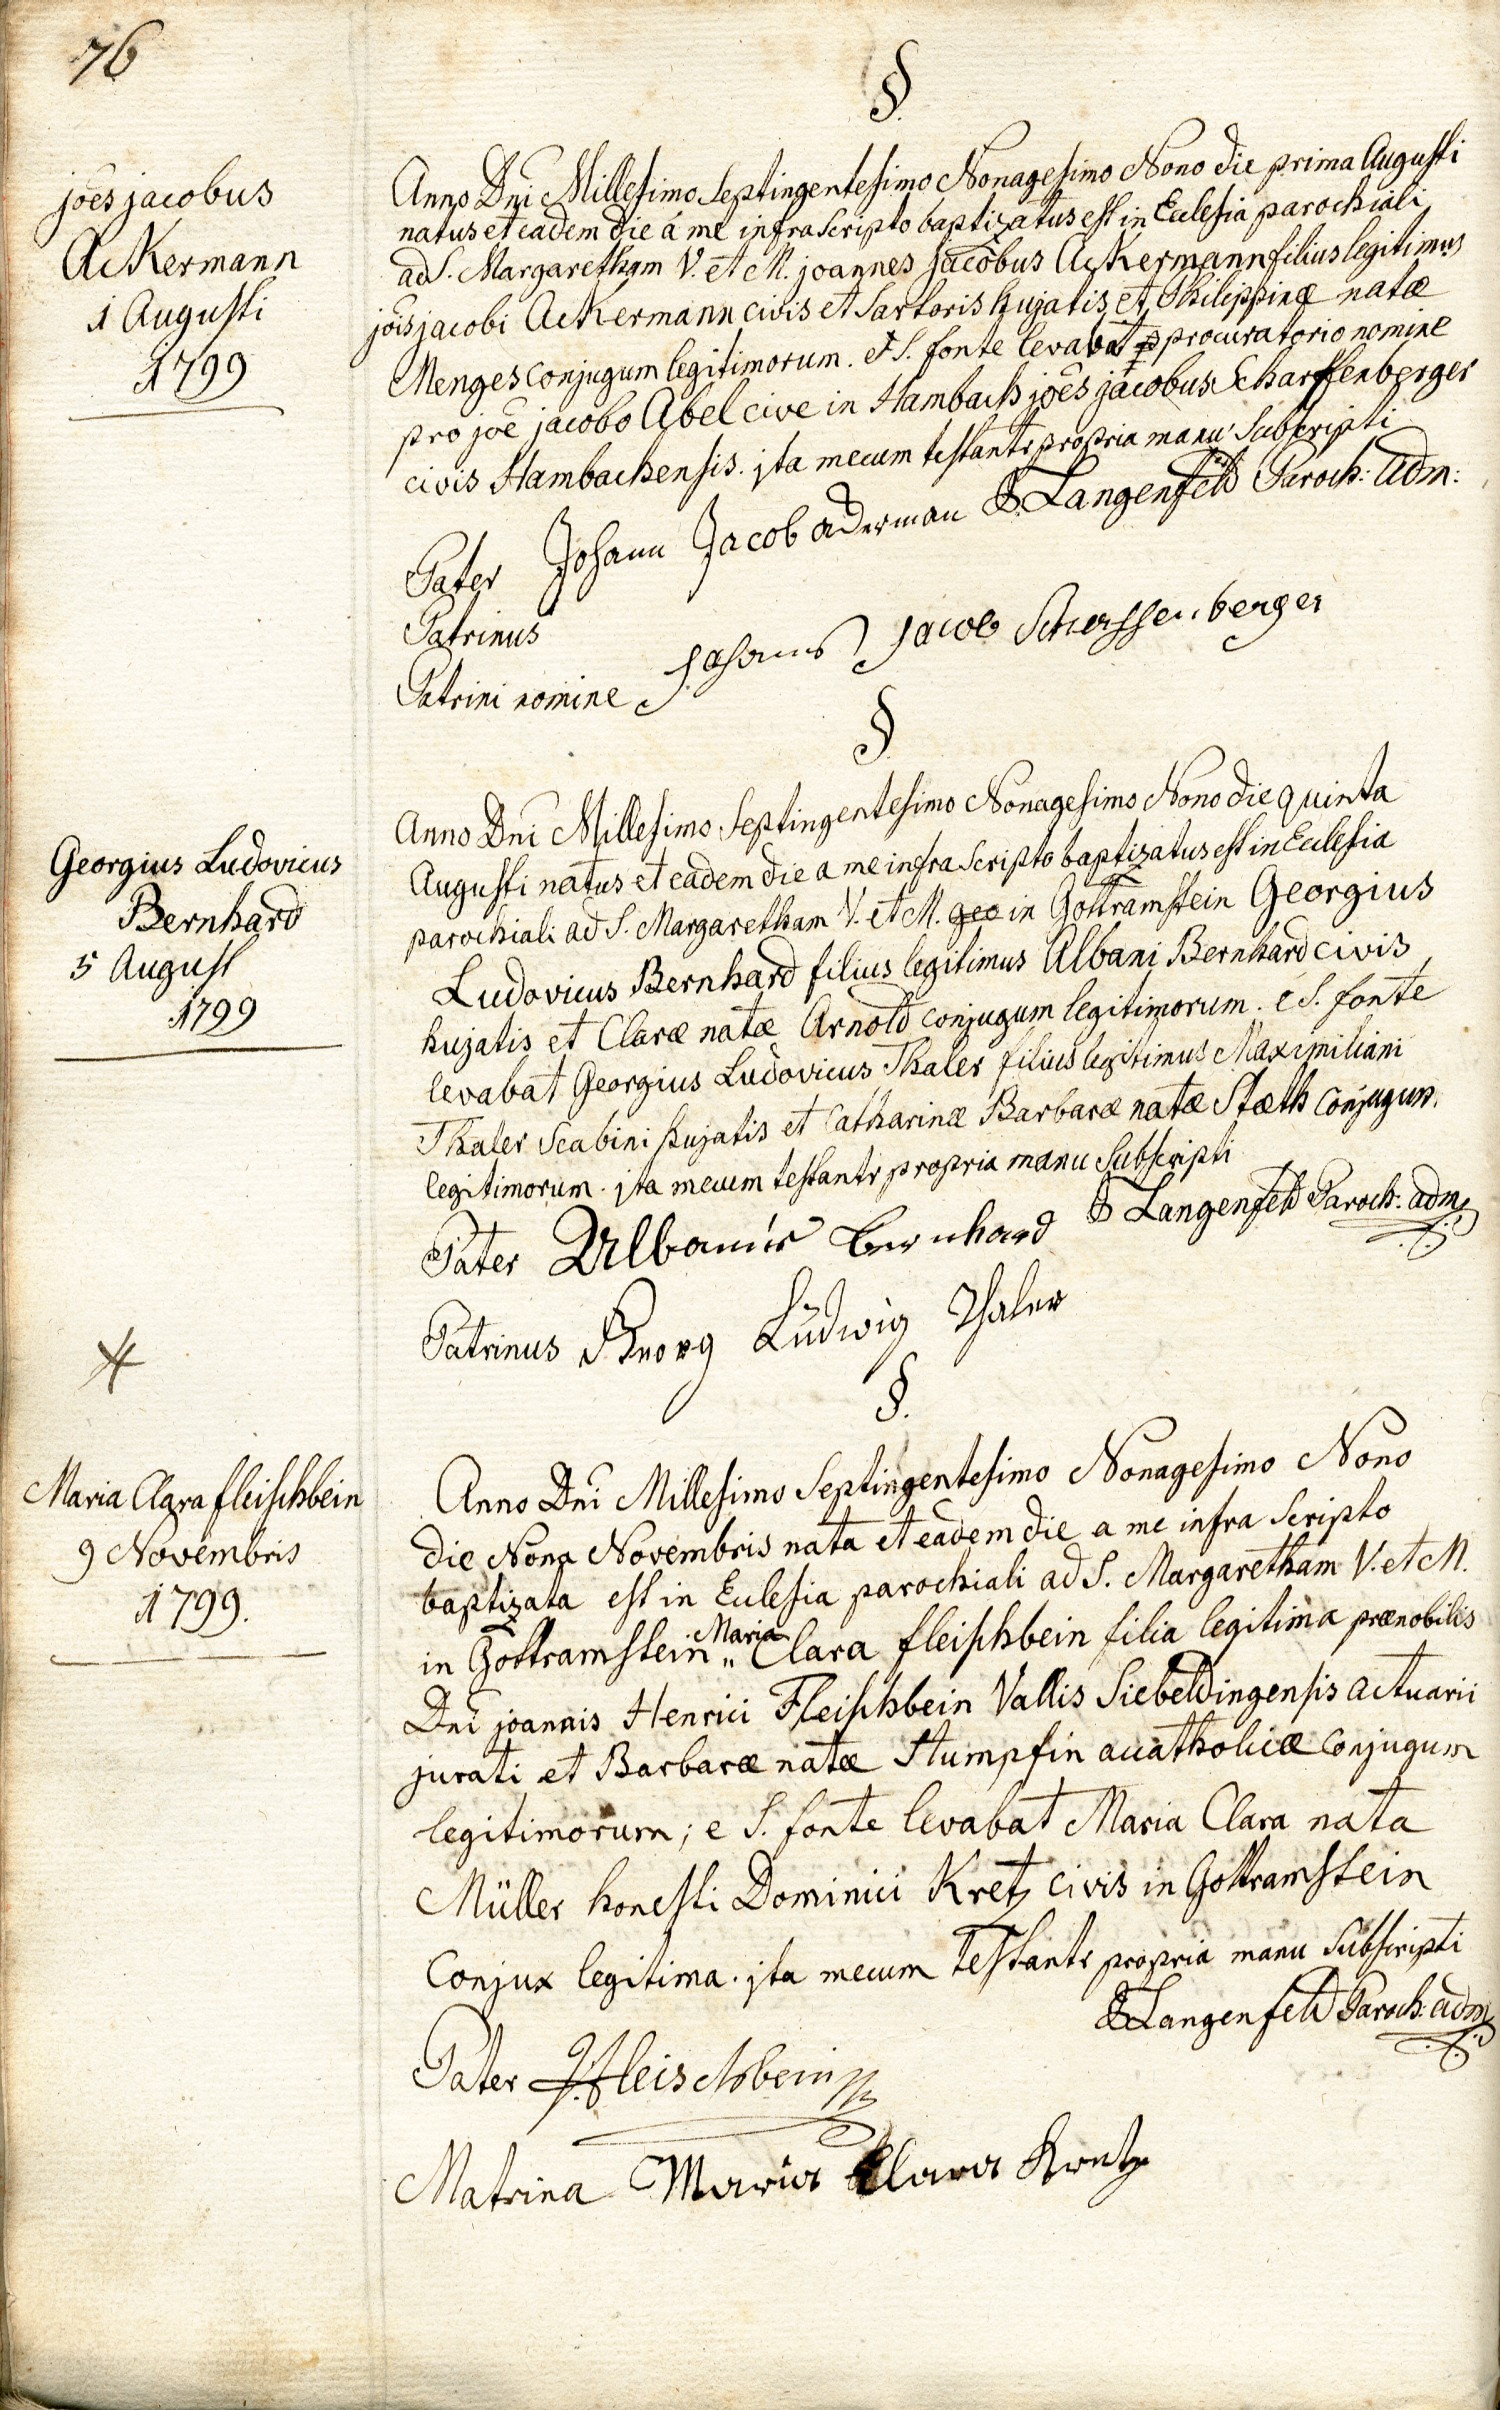 76
§.
joēs jacobus
Ackermann
1 Augusti
1799
Anno Dni Millesimo Septingentesimo Nonagesimo Nono die prima Augusti
natus et eadem die á me infra scripto baptizatus est in Ecclesia parochiali
ad S. Margaretham V. et M. joannes jacobus Ackermann filius legitimus
jōis jacobi Ackermann civis et Sartoris hujatis, et Philippinæ natæ
Menges conjugum legitimorum. e S. fonte levabat procuratorio nomine
pro joē jacobo Abel cive in Hambach joēs jacobus Scharffenberger
civis Hambachensis. jta mecum testantr propria manu subscripti
Langenfeld Paroch: adm:
Pater Johann Jacob ackerman
Patrinus
Patrini nomine Johannes Jacob Scharffenberger
§
Georgius Ludovicus
Bernhard
5 August
1799
Anno Dni Millesimo Septingentesimo Nonagesimo Nono die quinta
Augusti natus et eadem die a me infra scripto baptizatus est in Ecclesia
parochiali ad S. Margaretham V. et M. geo in Gottramstein Georgius
Ludovicus Bernhard filius legitimus Albani Bernhard civis
hujatis et Claræ natæ Arnold conjugum legitimorum. e S. fonte
levabat Georgius Ludovicus Thaler filius legitimus Maximiliani
Thaler Scabini hujatis et Catharinæ Barbaræ natæ Stæth conjugum.
legitimorum. jta mecum testantr propria manu subscripti
Langenfeld Paroch: adm
Pater Albanus Bernhard
Patrinus Georg Ludwig Thaler
§.
Maria Clara fleischbein
9 Novembris
1799.
Anno Dni Millesimo Septingentesimo Nonagesimo Nono
die Nona Novembris nata et eadem die a me infra scripto
baptizata est in Ecclesia parochiali ad S. Margaretham V. et M.
in Gottramstein Maria Clara fleischbein filia legitima prænobilis
Dni joannis Henrici Fleischbein Vallis Siebeldingensis actuarii
jurati et Barbaræ natæ Stumpfin acatholicæ conjugum
legitimorum; e S. fonte levabat Maria Clara nata
Müller honesti Dominici Kretz civis in Gottramstein
conjux legitima. jta mecum testantr propria manu subscripti
Langenfeld Paroch: adm
Pater Fleischbein
Matrina Maria Clara Kretz